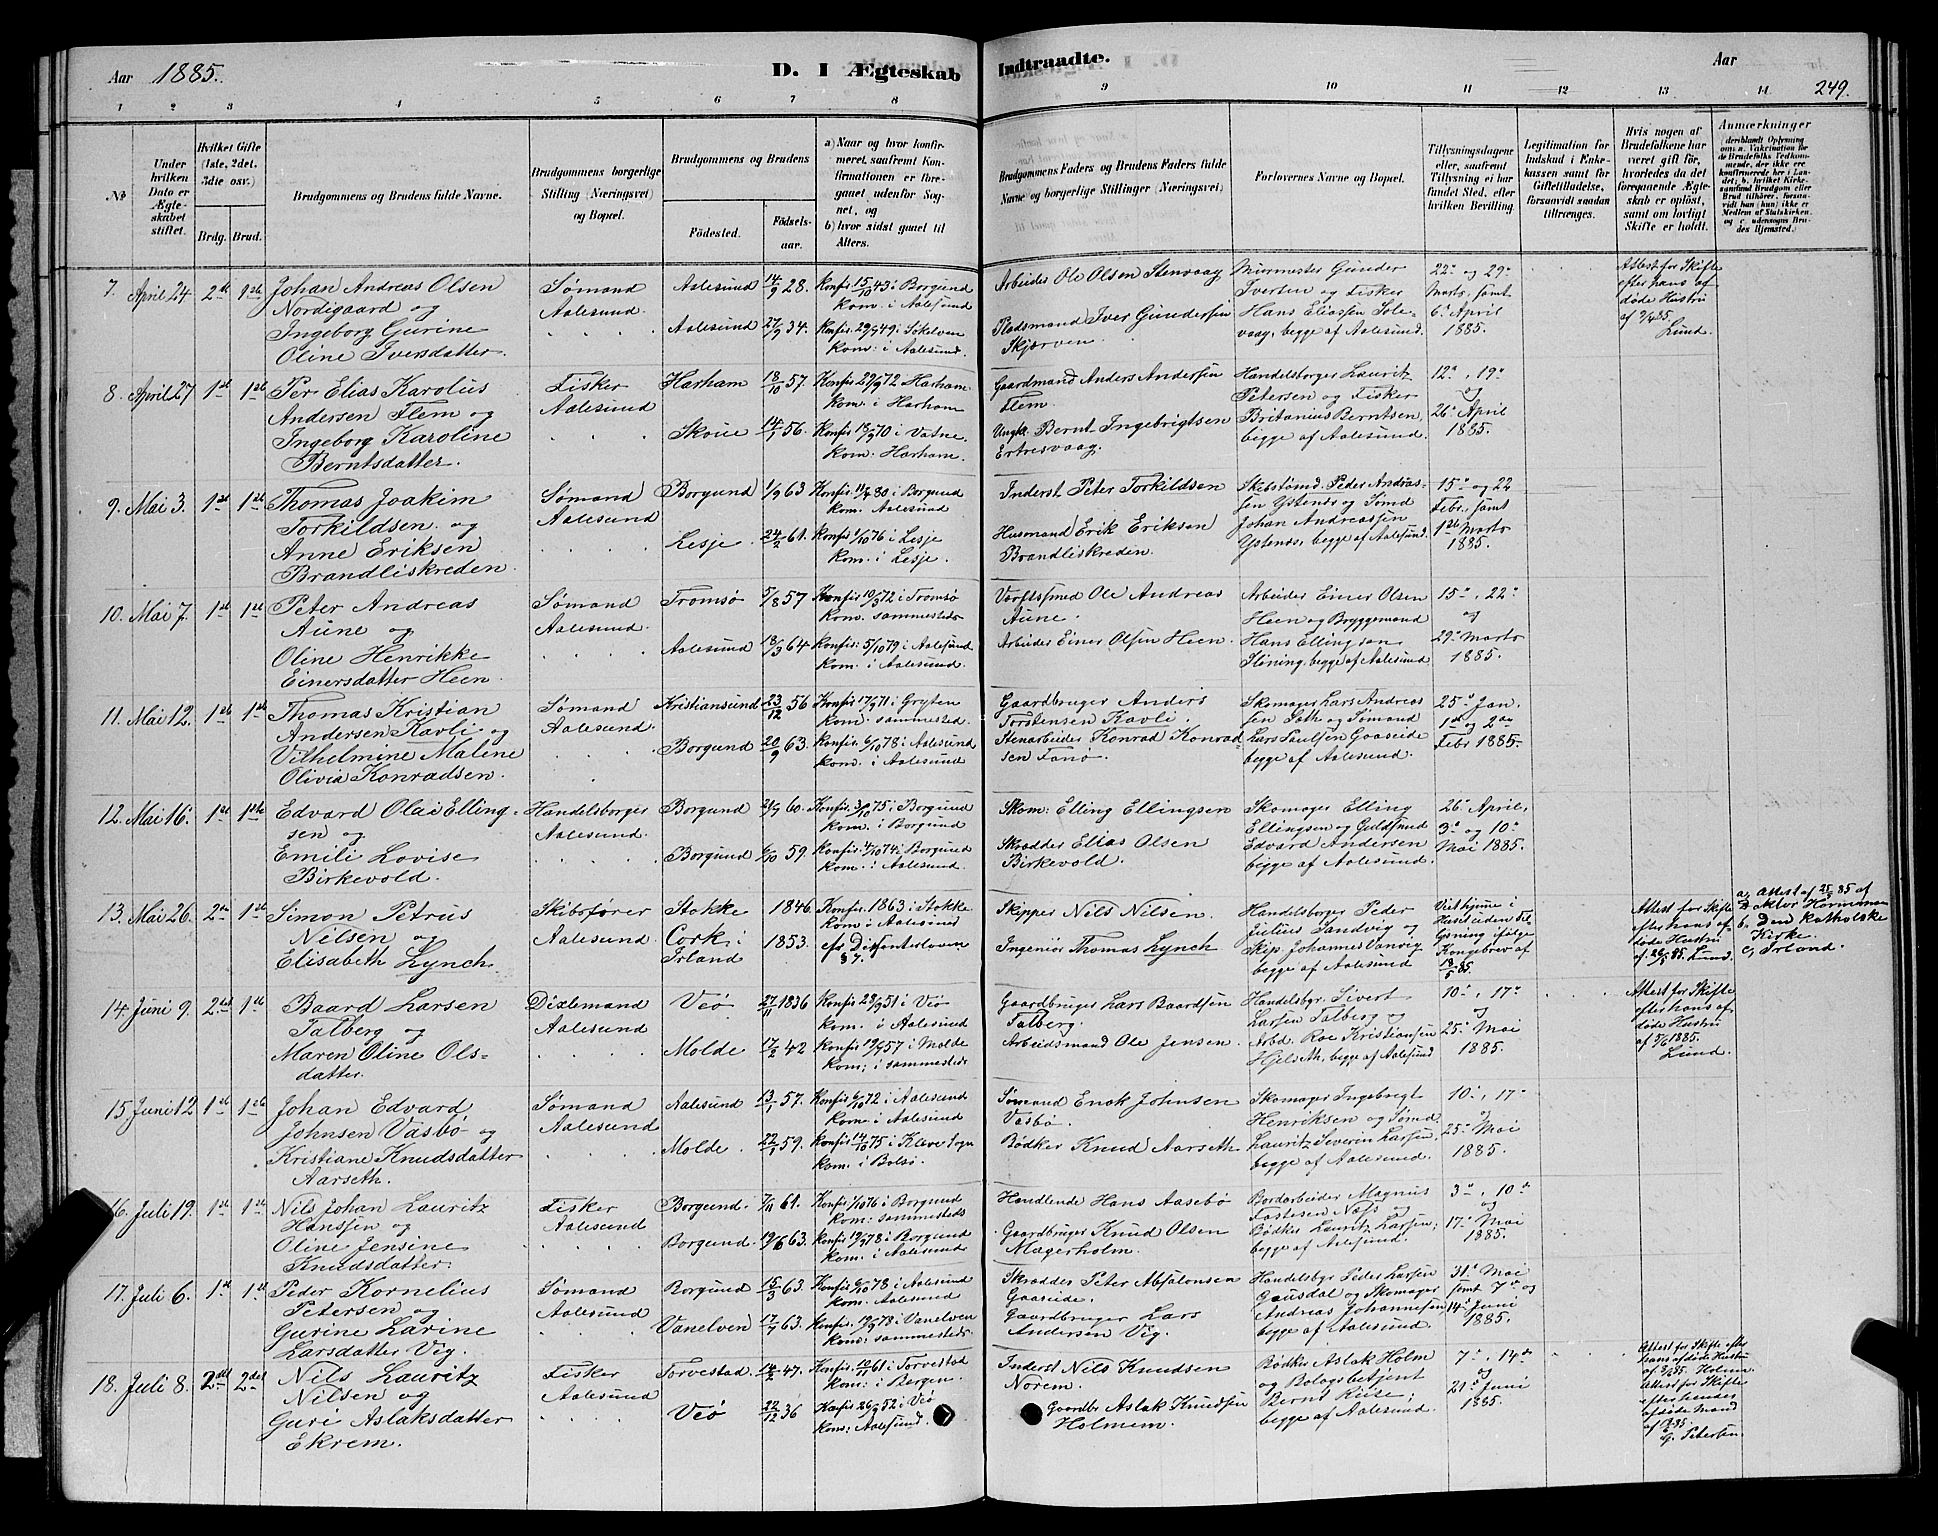 Aar 1885.
D. I Ægteskab Indtraadte.
Aar
249.
1 2 3 4 5 6 7 8 9 10 11 12 13 14
№
Under hvilken Dato er Ægteskabet stiftet.
Hvilket Gifte (1ste, 2det, 3die osv.)
Brdg. Brud.
Brudgommens og Brudens fulde Navne.
Brudgommens borgerlige Stilling (Næringsvei) og Bopæl.
Brudgommens og Brudens
Fødested. Fødselsaar.
a) Naar og hvor konfirmeret, saafremt Konfirmationen er foregaaet udenfor Sognet, og
b) hvor sidst gaaet til Alters.
Brudgommens Faders og Brudens Faders fulde Navne og borgerlige Stillinger (Næringsvei)
Forlovernes Navne og Bopæl.
Tillysningsdagene eller, saafremt Tillysning ei har fundet Sted, efter hvilken Bevilling.
Legitimation for Indskud i Enkekassen samt for Giftetilladelse, forsaavidt saadan tiltrænges.
Hvis nogen af Brudefolkene har været gift før, hvorledes da det foregaaende Ægteskab er opløst, samt om lovligt Skifte er holdt.
Anmærkninger
7. April 24 2det 1ste
Johan Andreas Olsen
Nordigaard og
Ingeborg Gurine
Oline Iversdatter.
Sømand
Aalesund.
Aalesund 14/9 28.
Aalesund 27/9 34.
Konfir 15/10 43 i Borgund
Kom. i Aalesund
Konfir. 29/9 49 i Søkelven
Kom: i Aalesund.
Arbeider Ole Olsen Stenvaag
Pladsmand Iver Gundersen
Skjærven.
Murmester Gunder
Iversen og Fisker
Hans Eliassen Solevaag, begge af Aalesund.
22de og 29de
Marts, samt
6te April
1885.
Attest for Skifte
efter hans afdøde Hustru
af 9/4 85.
Lund.
8. April 27 1ste 1ste
Per Elias Karolus
Andersen Flem og
Ingeborg Karoline
Berntsdatter.
Fisker
Aalesund
Harham 18/10 57.
Skoue 14/1 56.
Konfir 29/9 72 Harham
Kom. i Harham
i Vatne.
Kom. Harham.
Gaardmand Anders Andersen
Flem.
Ungk. Bernt Ingebrigtsen
Ertresvaag.
Handelsborger Lauritz
Petersen og Fisker
Britanius Berntsen,
begge af Aalesund.
12te, 19de
og
26de April
1885.
9. Mai 3. 1ste 1ste
Thomas Joakim
Torkildsen og
Anne Eriksen
Brandliskreden.
Sømand
Aalesund
Borgund 1/9 63
Lesje 24/2 61.
i Borgund
Kom. Aalesund
Konfir 1/10 76 i Lesje
Kom. i Lesje.
Inderst Peter Torkildsen
Husmand Erik Eriksen
Brandliskreden.
Skibstømd. Peder Andrassen Ystenes og Sømd
Johan Andreassen
Ystenes, begge af Aalesund.
15de og 22
Febr., samt
1ste Marts
1885.
10. Mai 7. 1ste 1ste
Peter Andreas
Aune og
Oline Henrikke
Einersdatter Heen.
Sømand
Aalesund.
Tromsø 5/8 57
Aalesund 18/3 64
i Tromsø
Kom. sammesteds
Konfir: 5/10 79 i Aalesund
Kom. i Aalesund.
Verftsfmd Ole Andreas
Aune.
Arbeider Einer Olsen Heen
Arbeider Einer Olsen
Heen og Bryggemand
Hans Ellingsen
Støning, begge af Aalesund
15de, 22de
og
29de Marts
1885.
11. Mai 12. 1ste 1ste
Thomas Kristian
Andersen Kavli og
Vilhelmine Maline
Olivia Konradsen.
Sømand
Aalesund.
Kristiansund 23/12 56
Borgund 20/9 63.
i Grytten
Kom. sammested.
Konfir. 6/10 78 i Aalesund
Kom. i Aalesund
Gaardbruger Anders
Torstensen Kavli.
Stenarbeider Konrad Konradsen Fanø.
Skomager Lars Andreassen Seth og Sømand
Lars Paulsen Gaaseide
begge af Aalesund.
25de Jan.
1ste og 2den
Febr 1885.
12. Mai 16. 1ste 1ste
Edvard Olai Ellingsen og
Emili Lovise
Birkevold.
Handelsborger
Aalesund.
Borgund 60.
Borgund 6/10 59.
Konfir. 3/10 75 i Borgund
Kom. i Borgund
Konfir. 4/10 74 i Borgund
Kom. i Aalesund.
Skom: Elling Ellingsen
Skrædder Elias Olsen
Birkevold.
Skomager Elling
Ellingsen og Guldsmed
Edvard Andersen
begge af Aalesund.
26de April,
3die og 10de
Mai 1885.
13. Mai 26. 2det 1ste
Simon Petrus
Nilsen og
Elisabeth Lynch.
Skibsfører
Aalesund.
Stokke 1846.
Cork i
Irland 1853.
Konfir. 1863 i Stokke
Kom i Aalesund
efr Dissenterloven
§7.
Skipper Nils Nilsen.
Ingeniør Thomas Lynch
Handelsborger Peder
Julius Sandvig og
Skip. Johannes Vanvig
begge af Aalesund
Vist hjem i
Huset uden Tillysning ifølge
Kongebrev af
18/5 85.
Attest for Skifte
efter hans afdøde Hustru
af 26/5 85. Lund.
a, Attest af 25/5 85 af
Doktor
b. Den katholske
Kirke.
c, Irland.
14. Juni 9. 2det 1ste
Baard Larsen
Talberg og
Maren Oline Olsdatter.
Dixlemand
Aalesund
Veø 27/11 1836
Molde 17/2 42
Konfir 28/9 51 i Veø
Kom. i Aalesund
i Molde
Kom; i sammesteds
Gaardbruger Lars Baardsen
Talberg.
Arbeidsmand Ole Jensen.
Handelsbgr. Sivert
Larsen Talberg og
Arbd. Roe Kristiansen
Hjelseth, begge af Aalesund
10de, 17de
og
25de Mai
1885.
Attest for Skifte
efter hans afdøde Hustru
af 3/6 1885.
Lund.
15 Juni 12 1ste 1ste
Johan Edvard
Johnsen Vasbø og
Kristiane Knudsdatter
Aarseth.
Sømand
Aalesund
Aalesund 13/1 57.
Molde. 22/1 59.
Konfir 6/10 72 i Aalesund
Kom i Aalesund
Konfir 14/10 75 i Kleve Sogn
Kom. i Bolsø.
Sømand Enok Johnsen
Vasbø.
Bødker Knud Aarseth
Skomager Ingebrigt
Henriksen og Sømd.
Lauritz Severin Larsen,
begge af Aalesund.
10de, 17de
og
25de Mai
1885.
16. Juli 19. 1ste 1ste
Nils Johan Lauritz
Hanssen og
Oline Jensine
Knudsdatter.
Fisker
Aalesund
Borgund. 7/11 61.
Borgund. 19/6 63.
Konfir 1/10 76 i Borgund
Kom: sammesteds
i Borgund
Kom. i Aalesund.
Handlende Hans Aasebø
Gaardbruger Knud Olsen
Magerholm.
Bordarbeider Magnus
Fostesen Næss og
Bødker Lauritz Larsen;
begge af Aalesund.
3die, 10de
og
17de Mai
1885.
17. Juli 6. 1ste 1ste
Peder Kornelius
Petersen og
Gurine Larine
Larsdatter Vig.
Sømand
Aalesund.
Borgund 15/3 63.
Vanelven 17/7 63.
Konfir 6/10 78 i Aalesund
Kom. Aalesund
i Vanelven
Kom: sammesteds.
Skrædder Peter Absalonsen
Gaaseide.
Gaardbruger Lars
Andersen Vig.
Handelsbgr Peder Larsen
Gausdal og Skomager
Andreas Johannesen
begge af Aalesund.
31te Mai
samt 7de og
14de Juni
1885.
18. Juli 8. 2det 2det
Nils Lauritz
Nilsen og
Guri Aslaksdatter
Ekrem.
Fisker
Aalesund
Torvestad 14/2 47.
Veø 22/12 36
i Torvestad
Kom: i Bergen.
Konfir 26/9 52 i Veø
Kom: Aalesund.
Inderst Nils Knudsen
Norem.
Gaardbr Aslak Knudsen
Holmem.
Bødker Aslak Holm
og Bologsbetjent
Bernt Riise;
begge af Aalesund.
7de, 14de
og
21de Juni
1885.
Attest for Skifte efter
hans afdøde Hustru
Attest for Skifte
efter hendes
afdøde Mand
G. Petersen